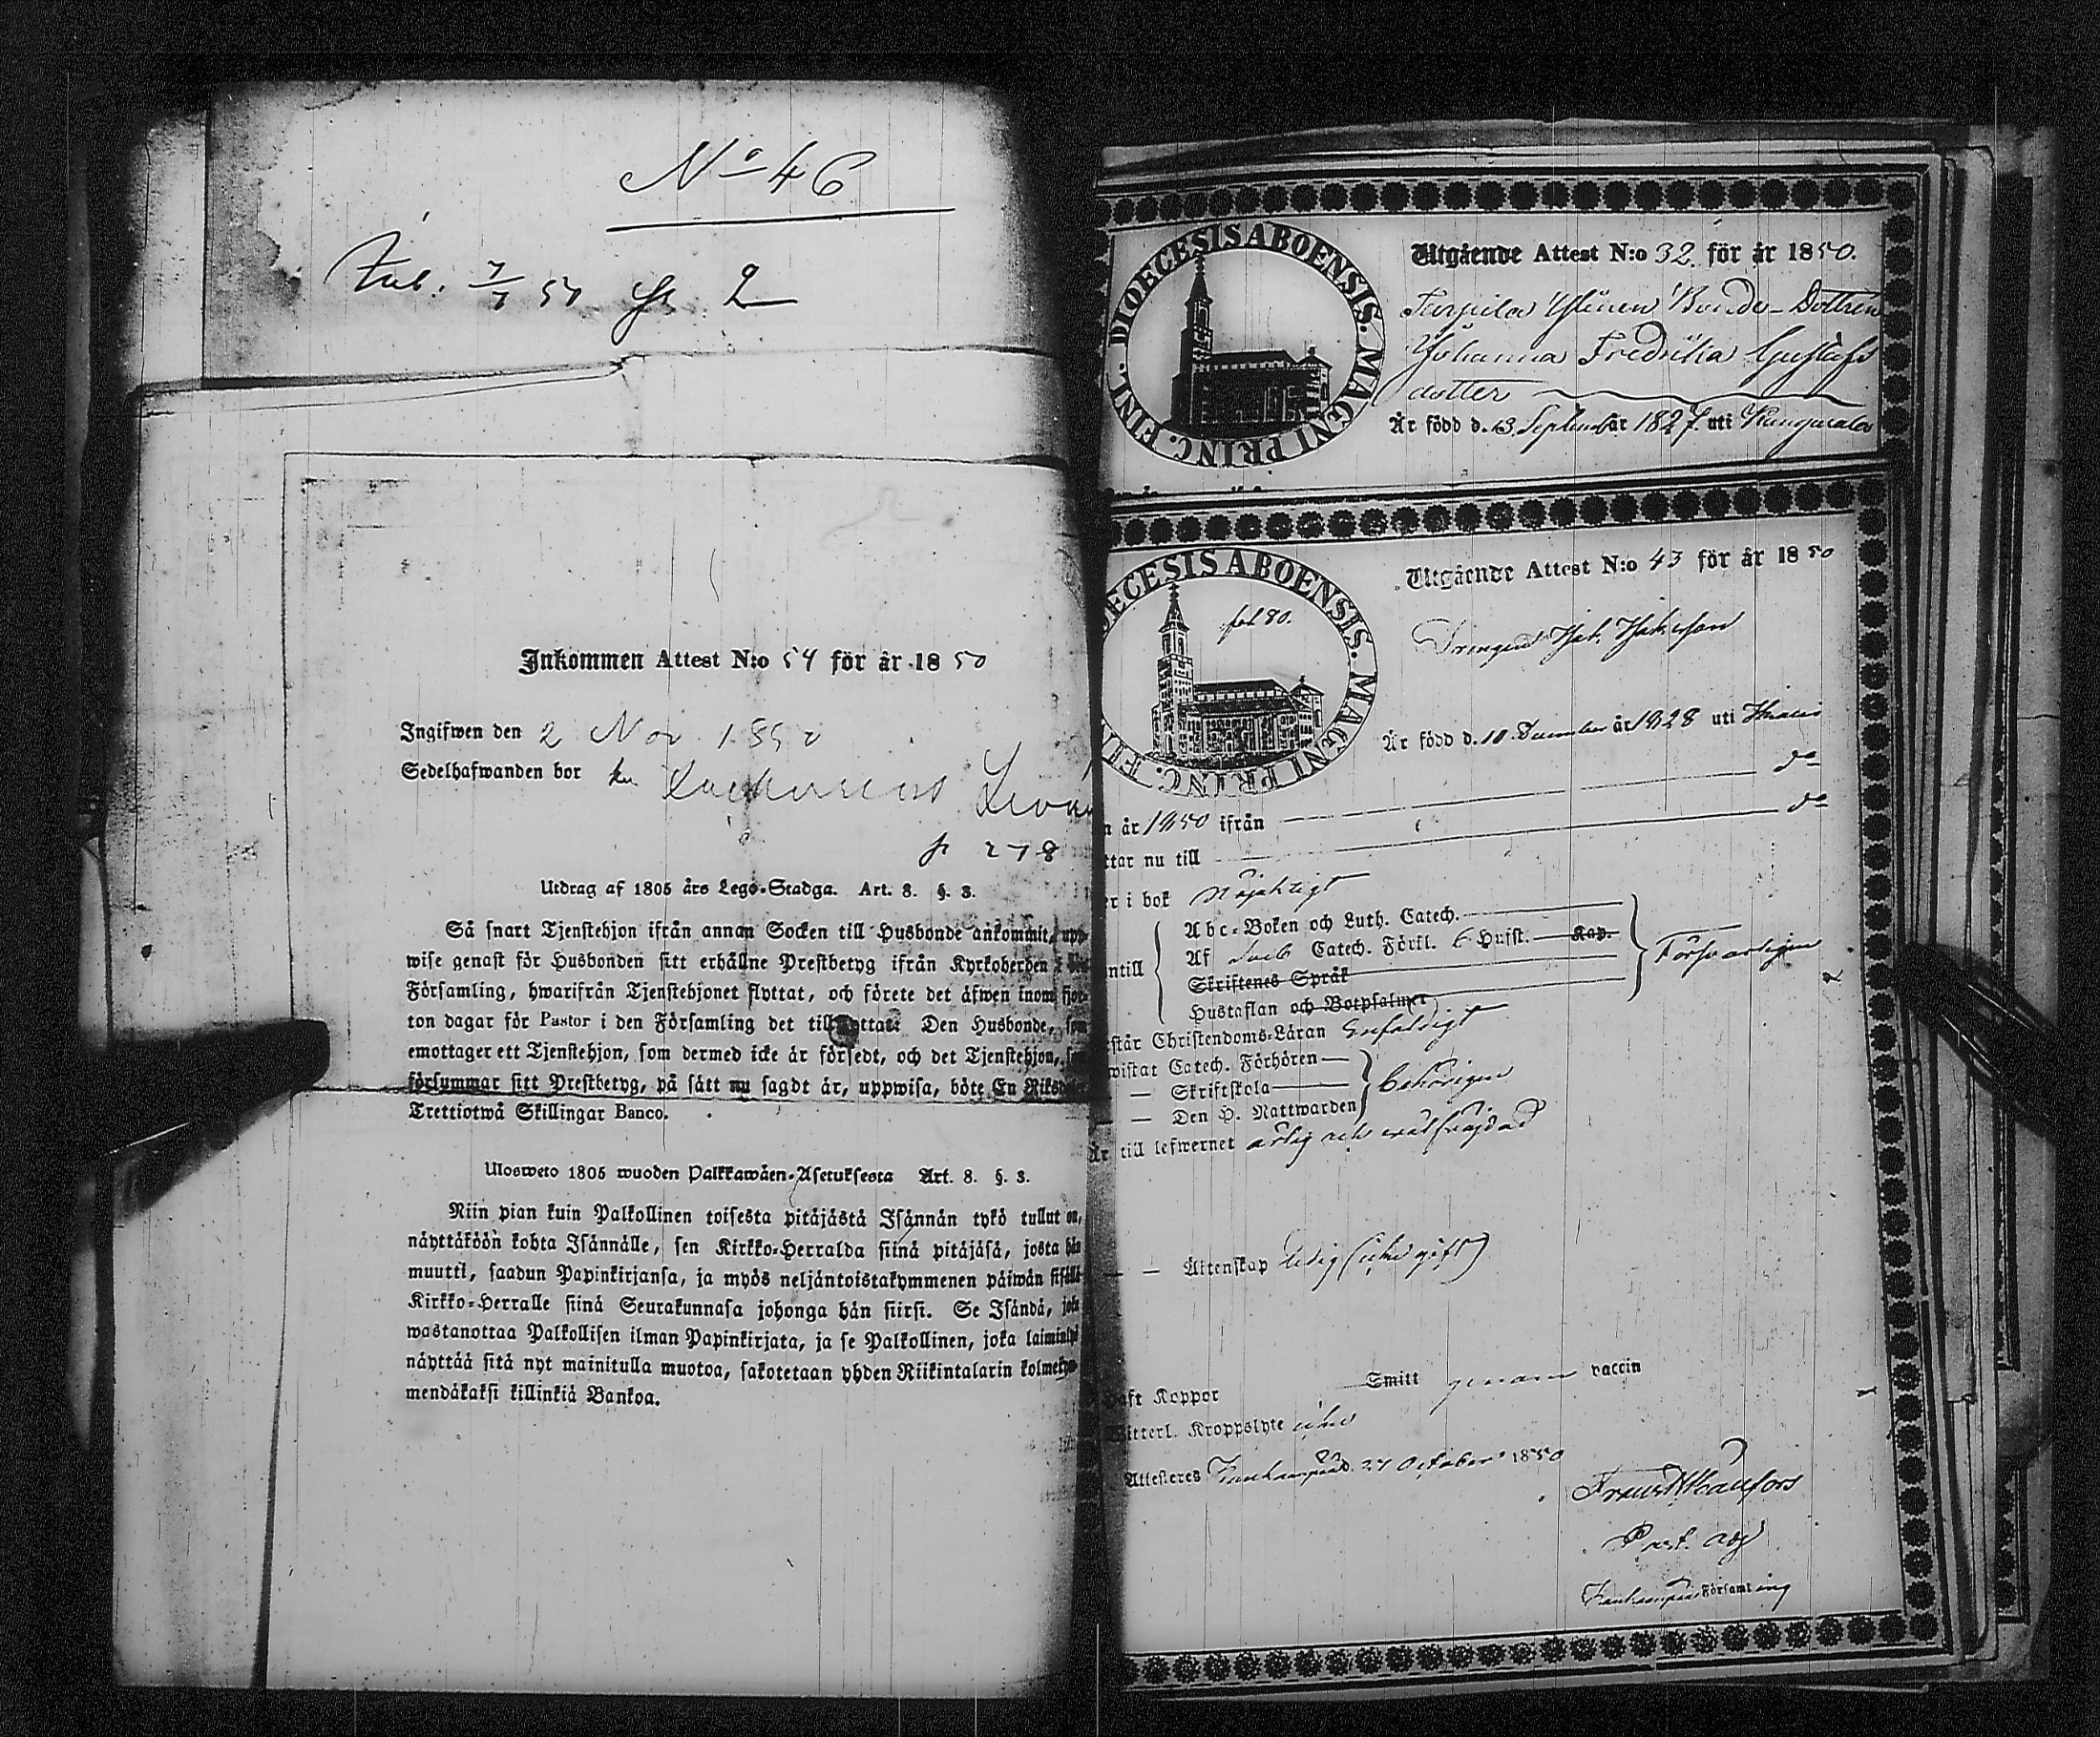 No 46
Inkommen Attest N:o 54 för år 1850
Ingifwen den 2 Nov 1850
Sedelhafwanden bor
278
Utdrag af 1805 års Lego-Stadga. Art. 8. §. 3.
Så snart Tjenstehjon ifrån annan Socken till Husbonde ankommit, upp-
wise genast för Husbonden sitt erhållne Prestbetyg ifrån Kyrkoherden i
Församling, hwarifrån Tjenstehjonet flyttat, och förete det äfwen inom fjor-
ton dagar för Pastor i den Församling det tillflyttat. Den Husbonde, som
emottager ett Tjenstehjon, som dermed icke är försedt, och det Tjenstehjon,
försummar sitt Prestbetyg, på sätt nu sagdt är, uppwisa, böte En Riksdaler
Trettiotwå Skillingar Banco.
Ulosweto 1805 wuoden Palkkawäen-Asetuksesta Art. 8. §. 3.
Niin pian kuin Palkollinen toisesta pitäjästä Isännän tykö tullut on,
näyttäköön kohta Isännälle, sen Kirkko-Herralda siinä pitäjäsä, josta hän
muutti, saadun Papinkirjansa, ja myös neljäntoistakymmenen päiwän sisällä
Kirkko-Herralle siinä Seurakunnasa johonga hän siirsi. Se Isändä, joka
wastanottaa Palkollisen ilman Papinkirjata, ja se Palkollinen, joka laiminlyö
näyttää sitä nyt mainitulla muotoa, sakotetaan yhden Riikintalarin kolmekym-
mendäkaksi killinkiä Bankoa.
DIOECESIS ABOENSIS. MAGNI PRINC. FINL.
Utgående Attest N:o 32. för år 1850.
Bonde-Dottren
Johanna Fredrika Gustafs
dotter
Är född d. 13 September år 1827. uti Kangasala
DIOECESIS ABOENSIS. MAGNI PRINC. FIN
fol 80.
Utgående Attest N:o 43 för år 1850
Drengen
Är född d. 10. December år 1828 uti
n år 1850 ifrån do
ttar nu till do
er i bok Nöjaktigt
Abc-Boken och Luth. Catech.
Af Catech. Förkl. 6 Hufst. Kap.
ntill Skriftenes Språk Försvarligen
Hustaflan och Botpsalmer
står Christendoms-Läran Enfaldigt
wistat Catech. Förhören
— Skriftskola behörigen
— Den H. Nattwarden
Är till lefwernet ärlig och wälfräjdad
— — Äktenskap ledig (icke gift)
haft Koppor Smitt genom vaccin
Witterl. Kroppslyte icke
Attesteras 27 October 1850
Past. adj
Församling